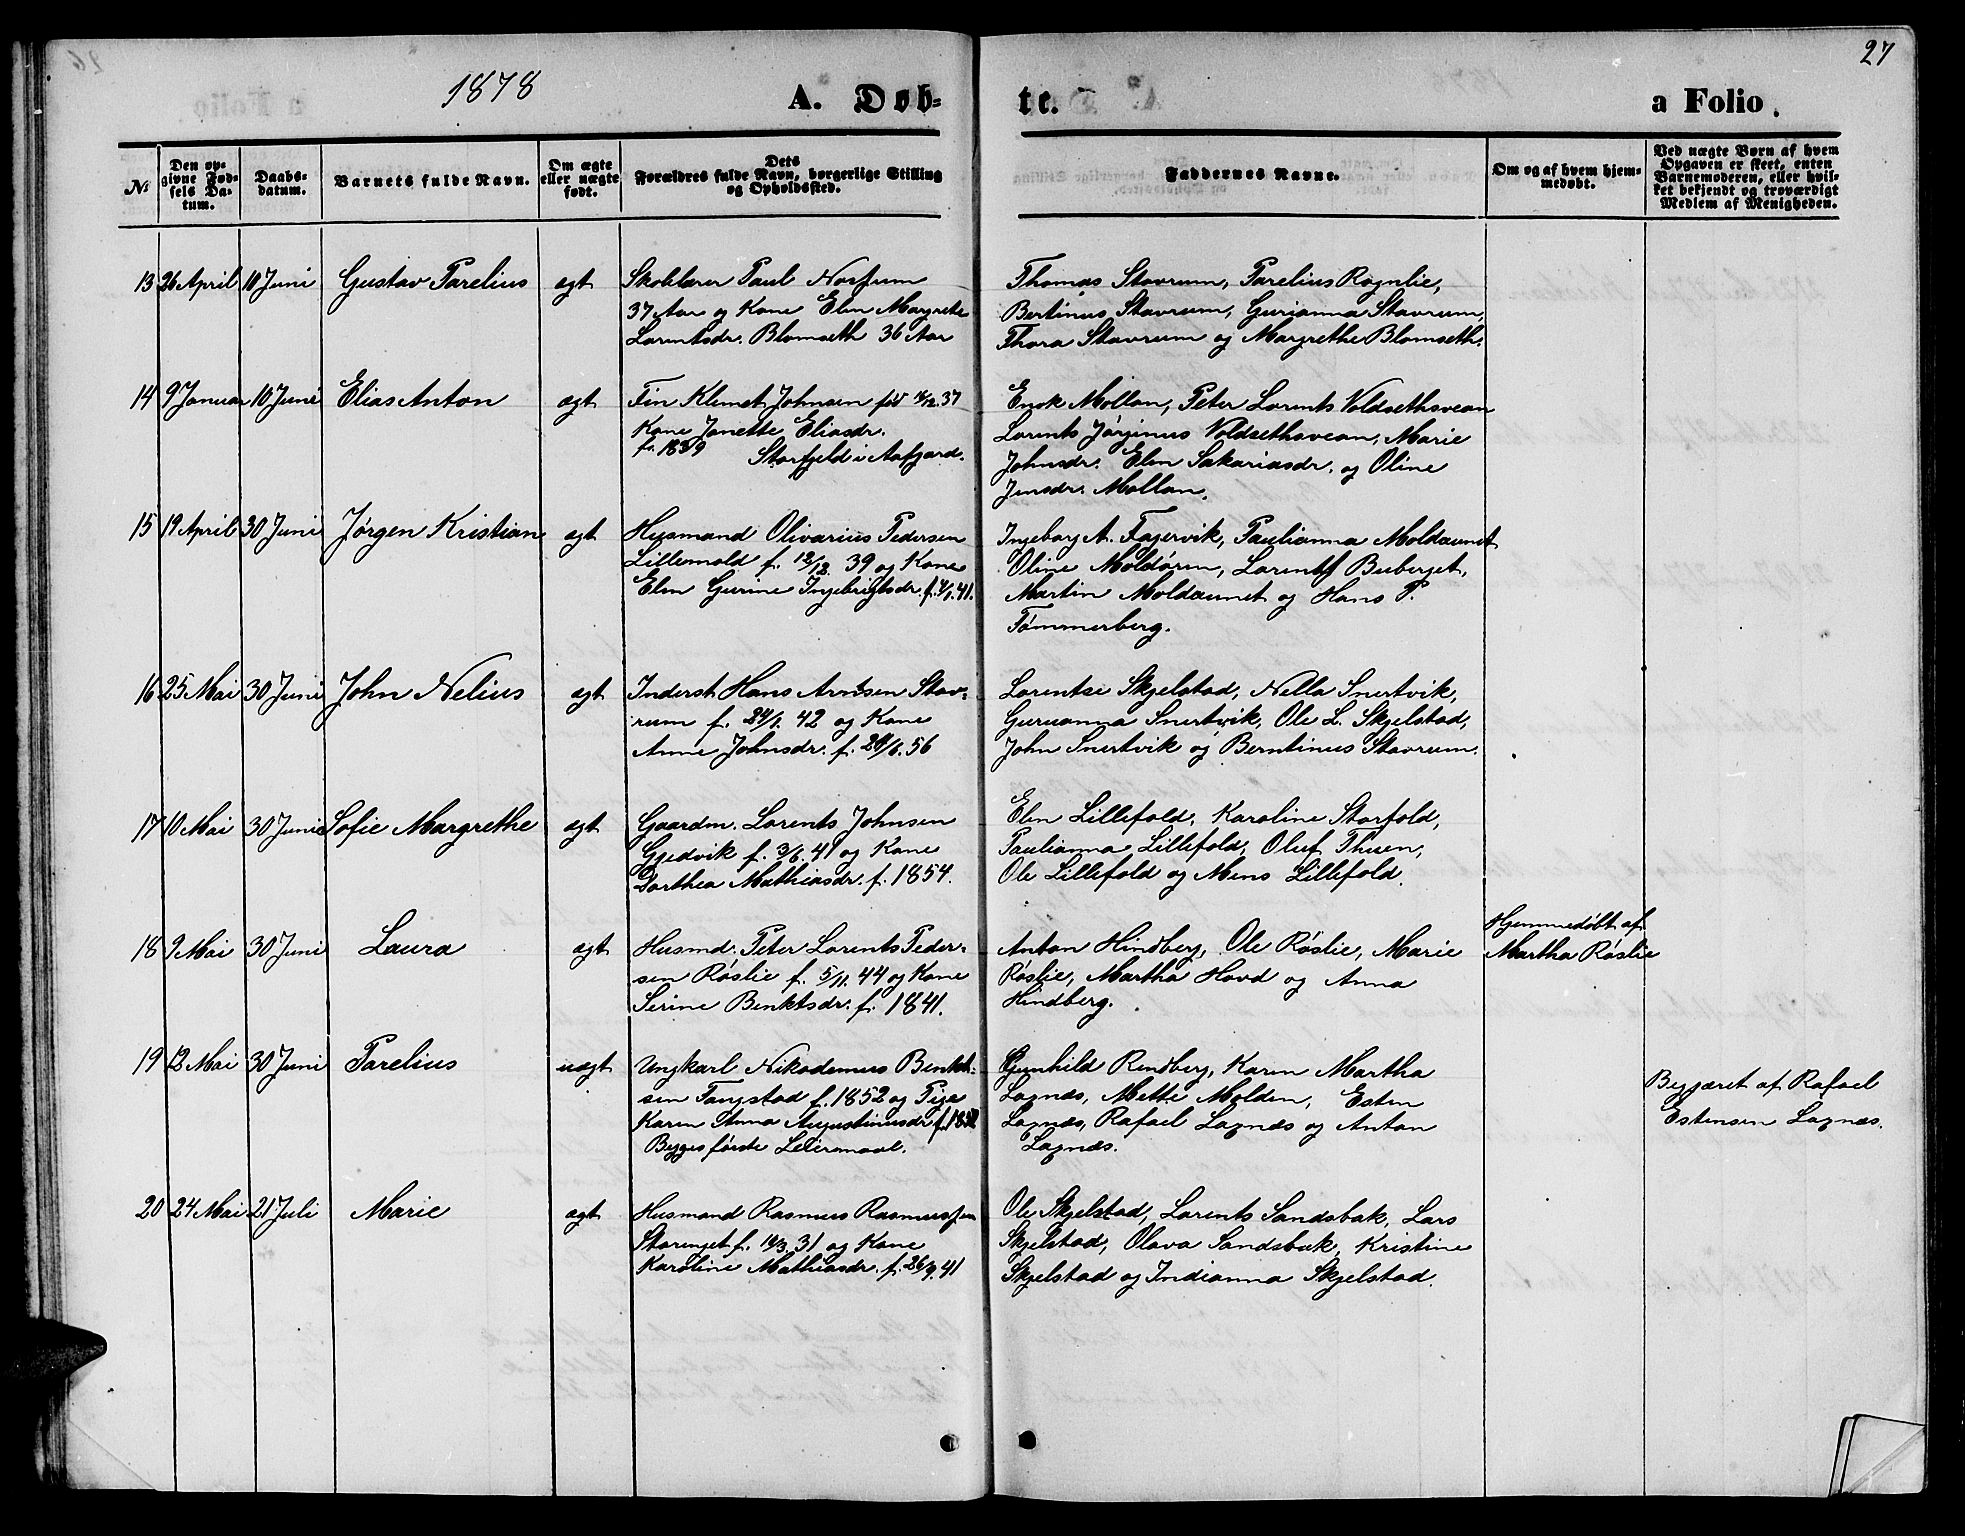 27
1878 A. Døb= te. a Folio.
No. Den opgivne Fødsels Datum. Daabsdatum. Barnets fulde Navn. Om ægte eller uægte født. Dets Forældres fulde Navn, borgerlige Stilling og Opholdssted. Faddernes Navne. Om og af hvem hjemmedøbt. Ved uægte Børn af hvem Opgaven er skeet, enten Barnemoderen, eller hvilket bekjendt og troværdigt Medlem af Menigheden.
13 26 April 10 Juni Gustav Parelius ægt Skolelærer Paul Norum
37 Aar og Kone Elen Margrete
Lorentsdr. Blomseth 36 Aar
Thomas Stavrum, Parelius Rognlie,
Bertinus Stavrum, Gurianna Stavrum,
Thora Stavrum og Margrethe Blomseth.
14 9 Januar 10 Juni Elias Anton ægt Fin Klemet Johnsen fød 37
Kone Jonette Eliasdr.
f. 1839 Storfjeld i Aafjord.
Enok Mollan, Peter Lorents Voldsethsvean
Lorents Jørginus Voldsethsvean, Marie
Johnsdr. Elen Sakariasdr. og Oline
Jensdr. Mollan.
15 19 April 30 Juni Jørgen Kristian ægt Husmand Olivarius Pedersen
Lillemold f. 12/12 39 og Kone
Elen Gurine Ingebrigtsdr. f. 4/1. 41.
Ingeborg A. Fagervik, Paulianna Moldaunet
Oline Moldøren, Lorents Buberget,
Martin Moldaunet og Hans P.
Tømmerberg.
16 25 Mai 30 Juni John Nelius ægt Inderst Hans Arntsen Stav=
rum f. 24/1. 42 og Kone
Anne Johnsdr. f. 24/6. 56
Lorentse Skjelstad, Nella Snertvik,
Guruanna Snertvik, Ole L. Skjelstad,
John Snertvik og Berntinus Stavrum.
17 10 Mai 30 Juni Sofie Margrethe ægt Gaardm. Lorents Johnsen
Gjedvik f. 3/6. 41 og Kone
Dorthea Mathiasdr. f. 1854.
Elen Lillefold, Karoline Storfold,
Paulianna Lillefold, Oluf Thuen,
Ole Lillefold og Mens Lillefold.
18 9 Mai 30 Juni Laura ægt Husmd. Peter Lorents Peder=
sen Røslie f. 5/11. 44 og Kone
Serine Benktsdr. f. 1841.
Anton Hindberg, Ole Røslie, Marie
Røslie, Martha Hovd og Anna
Hindberg.
Hjemmedøbt af
Martha Røslie
19 12 Mai 30 Juni Parelius uægt Ungkarl Nikodemus Benkt=
sen Fangstad f. 1852 og Pige
Karen Anna Augustinusdr f.
Begges første Leiermaal.
Gunhild Rindberg, Karen Martha
Laxnæs, Mette Molden, Esten
Laxnæs, Rafael Laxnæs og Anton
Laxnæs.
Begjæret af Rafael
Estensen Laxnæs.
20 24 Mai 21 Juli Marie ægt Husmand Rasmus Rasmussen
Storenget f. 31 og Kone
Karoline Mathiasdr. f. 26/9. 41
Ole Skjelstad, Lorents Sandsbak, Lars
Skjelstad, Olava Sandsbak, Kristine
Skjelstad og Indianna Skjelstad.